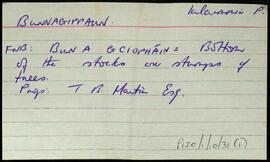 Kilcummin P.
BUNNAGIPPAUN.
FNB: BUN A GCIOPÁIN = Bottom
of the stocks or stumps of
trees.
Prop: T B. Martin Esq.
P120/1/0/31 (i)